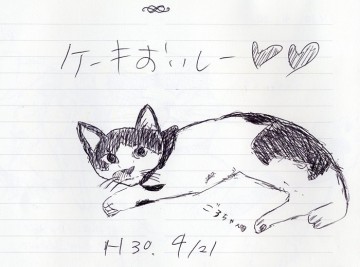 ケーキおいしー♡♡
ごまちゃん
H30. 4/21